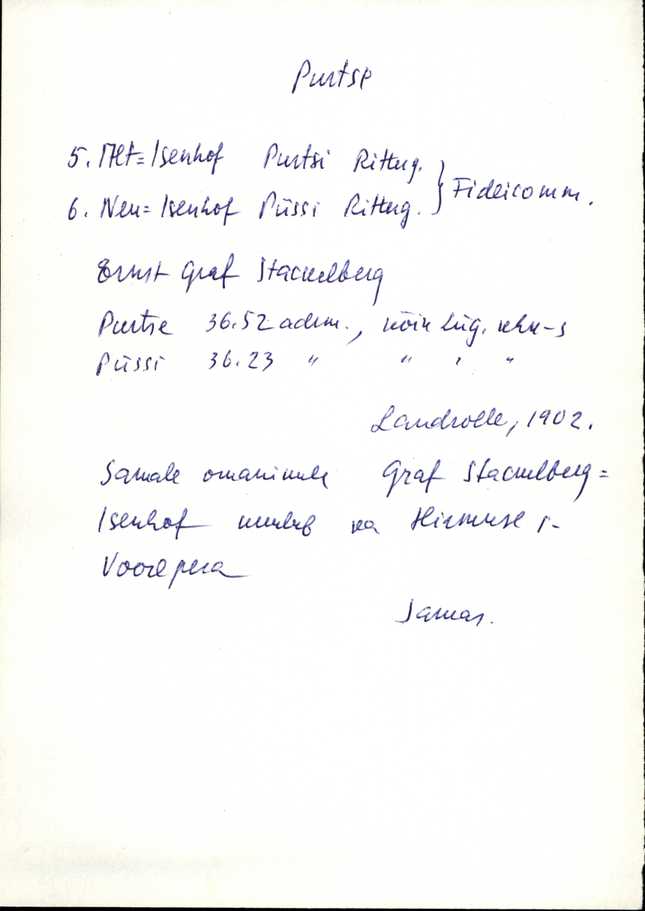 Purtse
5. Alt=Isenhof Purtsi Rittg. } Fideicomm.
6. Neu=Isenhof Püssi Rittg.
Ernst Graf Stackelberg
Purtse 36.52 adrm., kõik
Püssi 36.23 " " , "
Landrolle, 1902.
Samale omanikule Graf Stackelberg=
Isenhof kuulub ka Hirmuse j.
Voorepera
Samas.